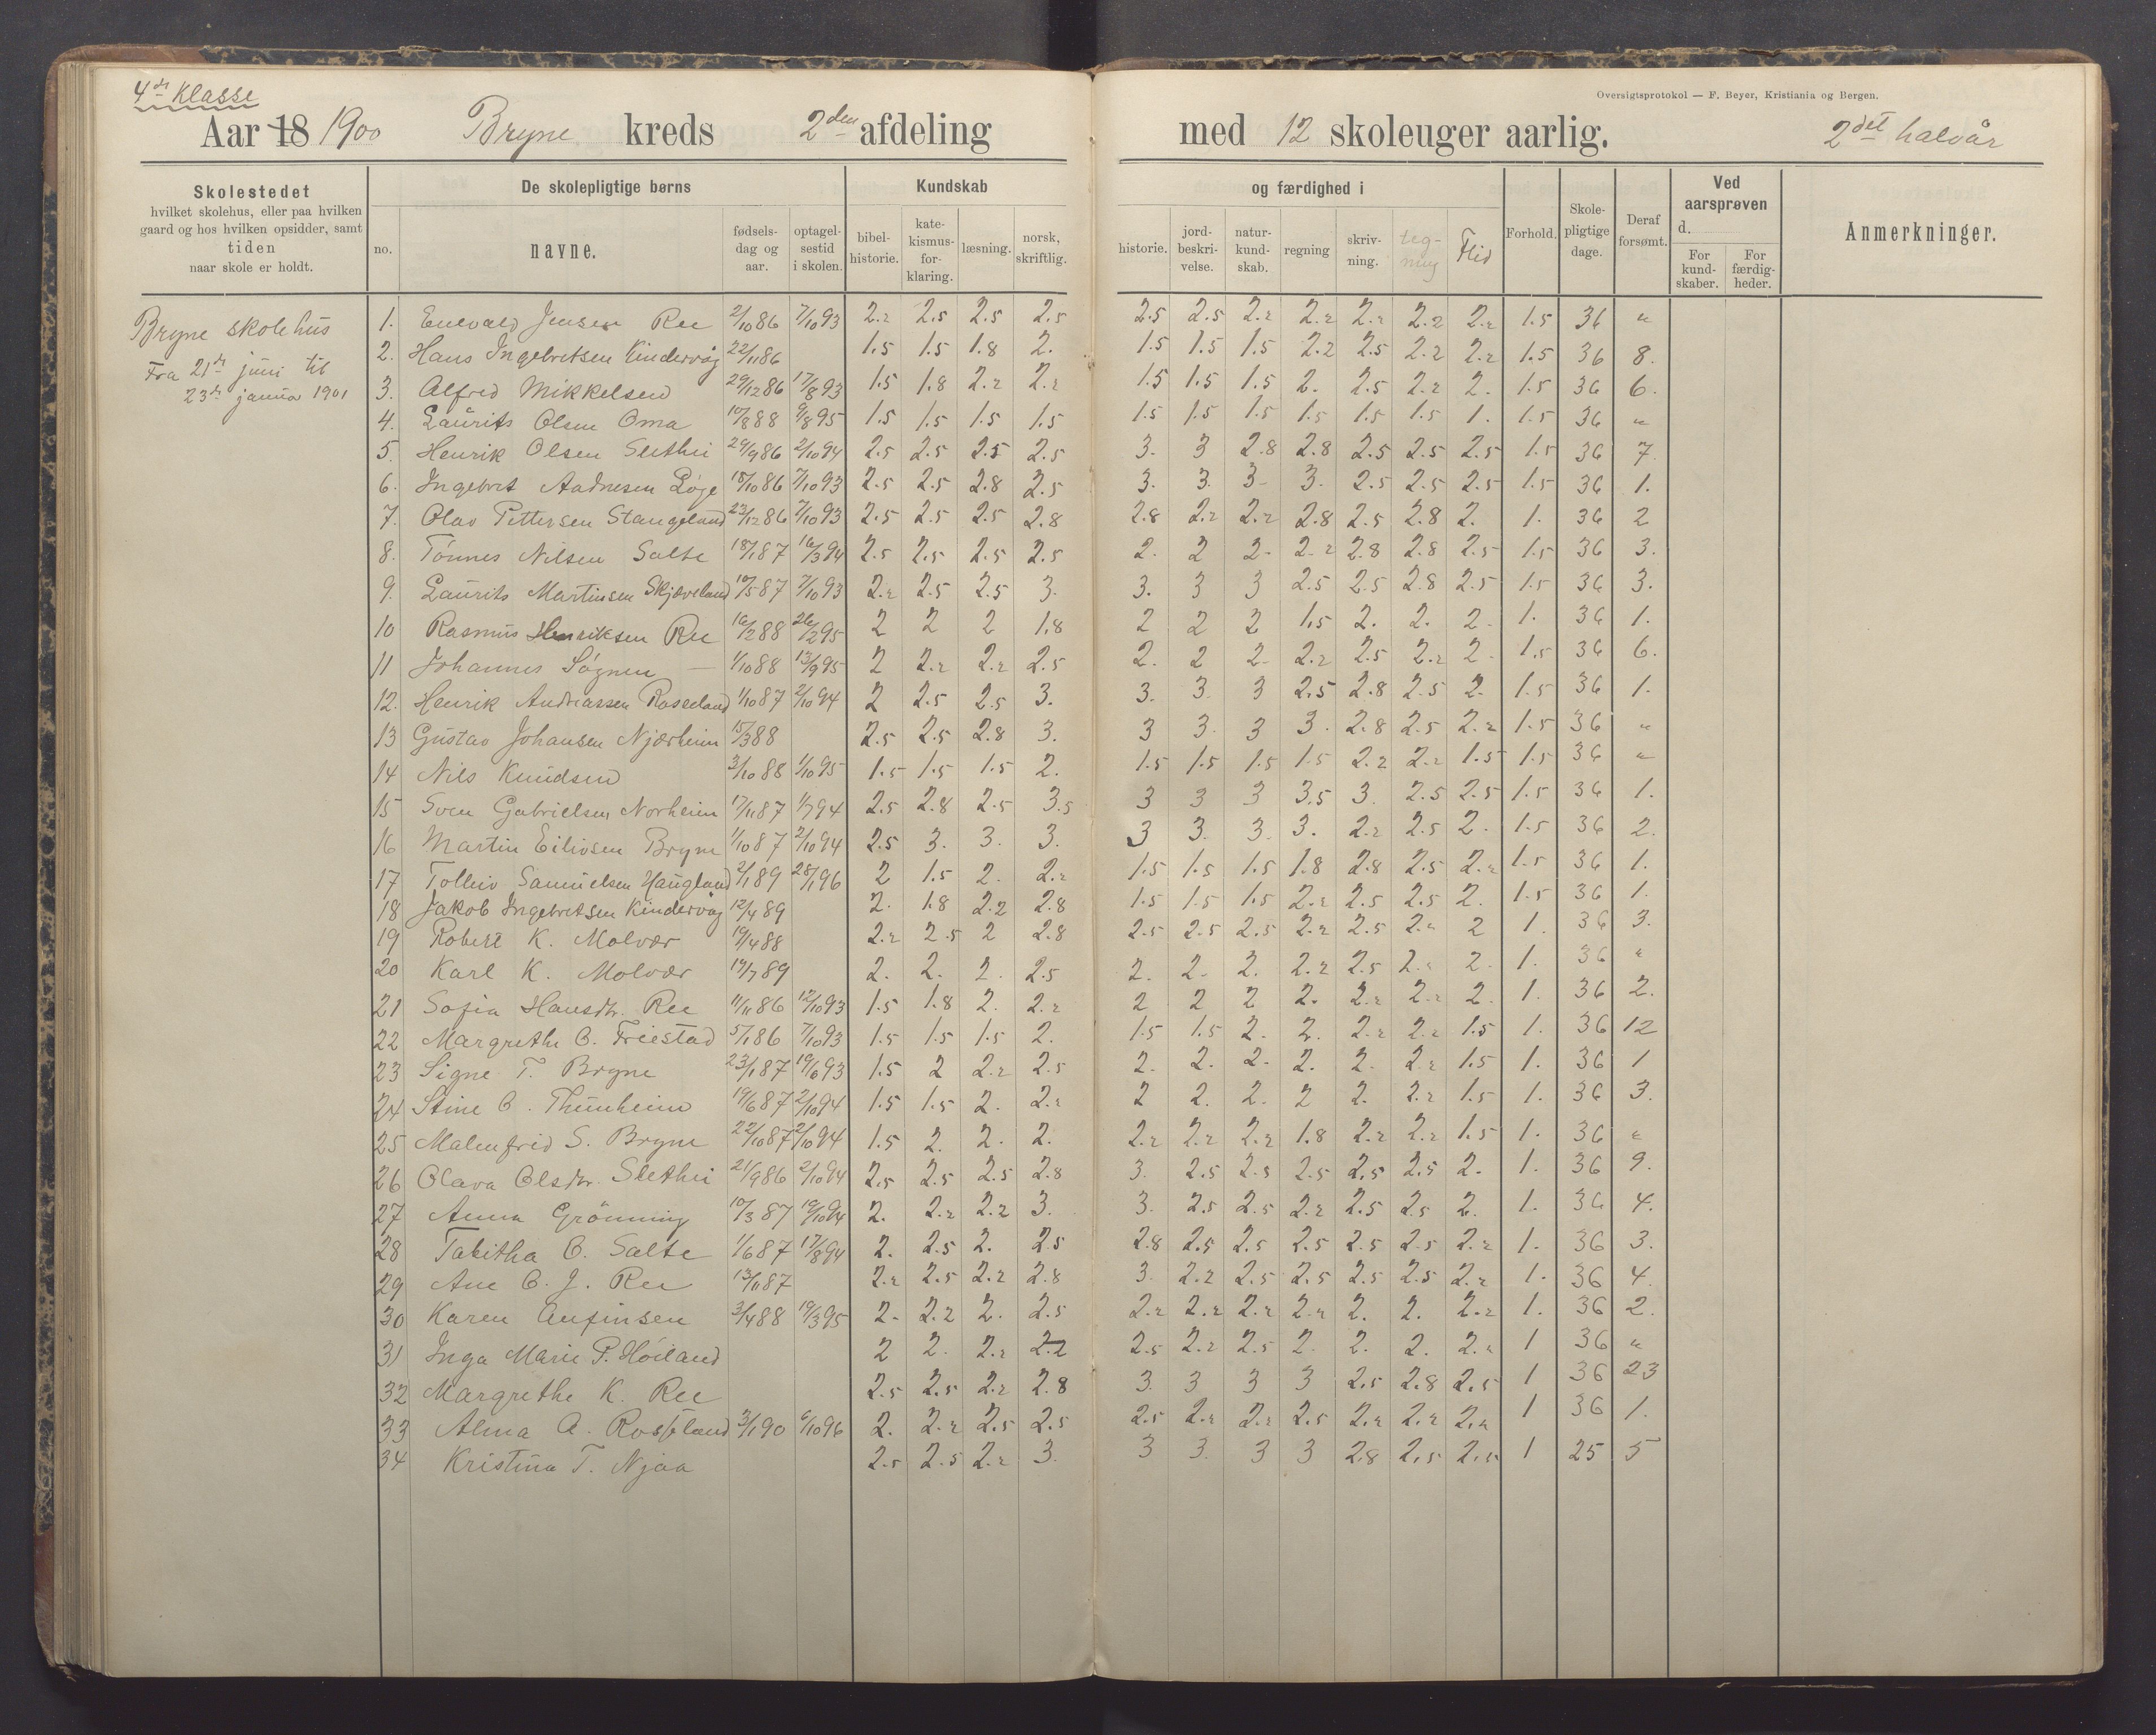 4de Klasse
Oversigtsprotokol — F. Beyer, Kristiania og Bergen.
Aar 18 1900 Bryne kreds 2den afdeling med 12 skoleuger aarlig. 2det halvår
Skolestedet hvilket skolehus, eller paa hvilken gaard og hos hvilken opsidder, samt tiden naar skole er holdt.
De skolepligtige børns
Kundskab og færdighed i
no. navne. fødselsdag og aar. optagelsestid i skolen. bibelhistorie. katekismusforklaring. læsning. norsk, skriftlig. historie. jordbeskrivelse. naturkundskab. regning skrivning. tegning Flid Forhold. Skolepligtige dage. Deraf forsømt. Ved aarsprøven d. For kundskaber. For færdigheder. Anmerkninger.
Bryne skolehus
Fra 21de juni til
23de janua 1901
1. Enevald Jensen Ree 2/10 86 7/10 93 2.2 2.5 2.5 2.5 2.5 2.5 2.2 2.2 2.2 2.2 2.2 1.5 36 "
2. Hans Ingebretsen Kindervåg 22/11 86 1.5 1.5 1.8 2. 1.5 1.5 1.5 2.2 2.5 2.2 2.2 1.5 36 8.
3. Alfred Mikkelsen 29/12 86 17/8 93 1.5 1.8 2.2 2.2 1.5 1.5 1.5 2. 2.5 2.2 2. 1.5 36 6.
4. Laurits Olsen Oma 10/8 88 9/8 95 1.5 1.5 1.5 1.5 1.5 1.5 1.5 1.5 1.5 1.5 1. 1.5 36 "
5. Henrik Olsen Slethei 29/9 86 2/10 94 2.5 2.5 2.5 2.5 3. 3 2.8 2.8 2.5 2.5 2.5 1.5 36 7
6. Ingebret Aadnesen Løge 18/10 86 7/10 93 2.5 2.5 2.8 2.5 3. 3. 3 3. 2.5 2.5 2.5 1.5 36 1.
7. Olav Pettersen Stangeland 23/12 86 7/10 93 2.5 2.5 2.5 2.8 2.8 2.2 2.2 2.8 2.5 2.8 2. 1. 36 2
8. Tönnes Nilsen Salte 18/1 87 16/3 94 2.5 2.5 2.5 2.5 2. 2 2 2.2 2.8 2.8 2.5 1.5 36 3.
9. Laurits Martinsen Skjæveland 10/5 87 7/10 93 2.2 2.5 2.5 3. 3. 3 3 2.5 2.5 2.8 2.5 1.5 36 3.
10 Rasmus Henriksen Ree 16/2 88 26/2 95 2 2 2 1.8 2 2 2 1.5 2. 2. 2 1. 36 1.
11 Johannes Sógnen — 1/10 88 13/9 95 2 2.2 2.2 2.5 2. 2 2 2.2 2.5 2.2 2 1.5 36 6.
12. Henrik Andreassen Rosseland 1/10 87 2/10 94 2 2.5 2.5 3. 3. 3. 3 2.5 2.8 2.5 2. 1.5 36 1.
13 Gustav Johansen Njærheim 15/3 88 2.5 2.5 2.8 3. 3 3. 3 3. 2.8 2.5 2.2 1.5 36 "
14 Nils Knudsen 3/10 88 1/10 95 1.5 1.5 1.5 2. 1.5 1.5 1.5 1.5 2.2 2.2 1.5 1.5 36 "
15 Sven Gabrielsen Norheim 17/11 87 1/7 94 2.5 2.8 2.5 3.5 3 3 3 3.5 3. 2.5 2.5 1.5 36 1.
16 Martin Eilivsen Bryne 1/10 87 2/10 94 2.5 3. 3. 3. 3 3. 3. 3. 2.2 2.5 2. 1.5 36 2.
17 Tolleiv Samuelsen Haugland 2/1 89 28/1 96 2 1.5 2. 2.2 1.5 1.5 1.5 1.8 2.8 2.5 2.2 1.5 36 1.
18 Jakob Ingebretsen Kindervåg 12/4 89 2. 1.8 2.2 2.8 1.5 1.5 1.5 2.2 2.5 2.5 2. 1.5 36 1.
19 Robert K. Molvær 19/4 88 2.2 2.5 2 2.8 2.5 2.5 2.5 2.2 2.5 2.2 2 1. 36 3.
20 Karl K. Molvær 19/7 89 2. 2. 2. 2.5 2. 2. 2. 2.2 2.5 2.2 2. 1. 36 "
21 Sofia Hansdtr. Ree 11/11 86 12/10 93 1.5 1.8 2. 2.2 2 2 2 2. 2.2 2.2 2. 1. 36 2.
22 Margrethe B. Friestad 5/1 86 7/10 93 1.5 1.5 1.5 2. 1.5 1.5 2. 2. 2.2 2.2 1.5 1. 36 12
23 Signe T. Bryne 23/1 87 19/6 93 1.5 2 2.2 2.5 2. 2. 2. 2. 2. 2.2 1.5 1. 36 1
24 Stine B. Thunheim 19/6 87 2/10 94 1.5 1.5 2. 2.2 2 2. 2. 2 2. 2.2 1.5 1. 36 3.
25 Malenfrid S. Bryne 22/10 87 2/10 94 1.5 2. 2. 2. 2.2 2.2 2.2 1.8 2.2 2.2 1.5 1. 36 "
26 Olava Olsdtr. Slethei 21/9 86 2/10 94 2.5 2.5 2.5 2.8 3. 2.5 2.5 2.5 2.5 2.5 2. 1. 36 9.
27 Anna Grönning 10/3 87 19/10 94 2. 2.2 2.2 3. 3. 2.5 2.5 2.2 2.5 2.5 2. 1. 36 4.
28 Tabitha B. Salte 1/6 87 17/8 94 2. 2.5 2. 2.5 2.8 2.5 2.5 2.5 2.5 2.5 2.2 1. 36 3.
29 Ane B. J. Ree 13/11 87 2.2 2.5 2.2 2.8 3. 2.2 2.5 2.5 2.5 2.5 2.2 1. 36 4.
30 Karen Anfinsen 3/4 88 19/3 95 2. 2.2 2. 2.5 2.2 2.2 2.2 2.2 2. 2. 2.2 1. 36 2.
31 Inga Marie P. Höiland 2 2. 2.2 2.2 2.5 2.2 2.5 2. 2. 2. 2.2 1 36 "
32 Margrethe K. Ree 2.5 2.5 2.2 2.8 3. 3 3 3 2.5 2.8 2.5 1 36 23
33 Alma A. Rosseland 3/1 90 6/10 96 2. 2.2 2.5 2.5 2.5 2.2 2.2 2.5 2.2 2.2 2.2 1 36 1.
34 Kristina T. Njaa 2.5 2.5 2.2 3. 3 3. 3 3 2.8 2.5 2.5 1 25 5